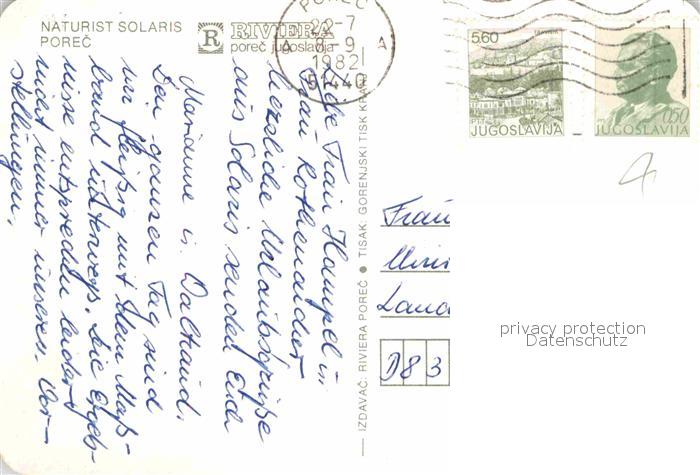 NATURIST SOLARIS
POREČ
R RIVIERA
poreč jugoslavija
POREČ
22-7
8-9
1982
51440
A A
5,60
JUGOSLAVIJA
0,50
JUGOSLAVIJA
4
Liebe Frau Hampel u.
Frau Rothenaicher
herzliche Urlaubsgrüße
aus Solaris senden Euch
Marianne u. Waltraud.
Den ganzen Tag sind
wir fleißig mit dem Maß-
band unterwegs. Die Ergeb-
nisse entsprechen leider
nicht immer unseren Vor-
stellungen.
IZDAVAČ: RIVIERA POREČ ● TISAK: GORENJSKI TISK KRANJ
Frau
Land
D83
privacy protection
Datenschutz